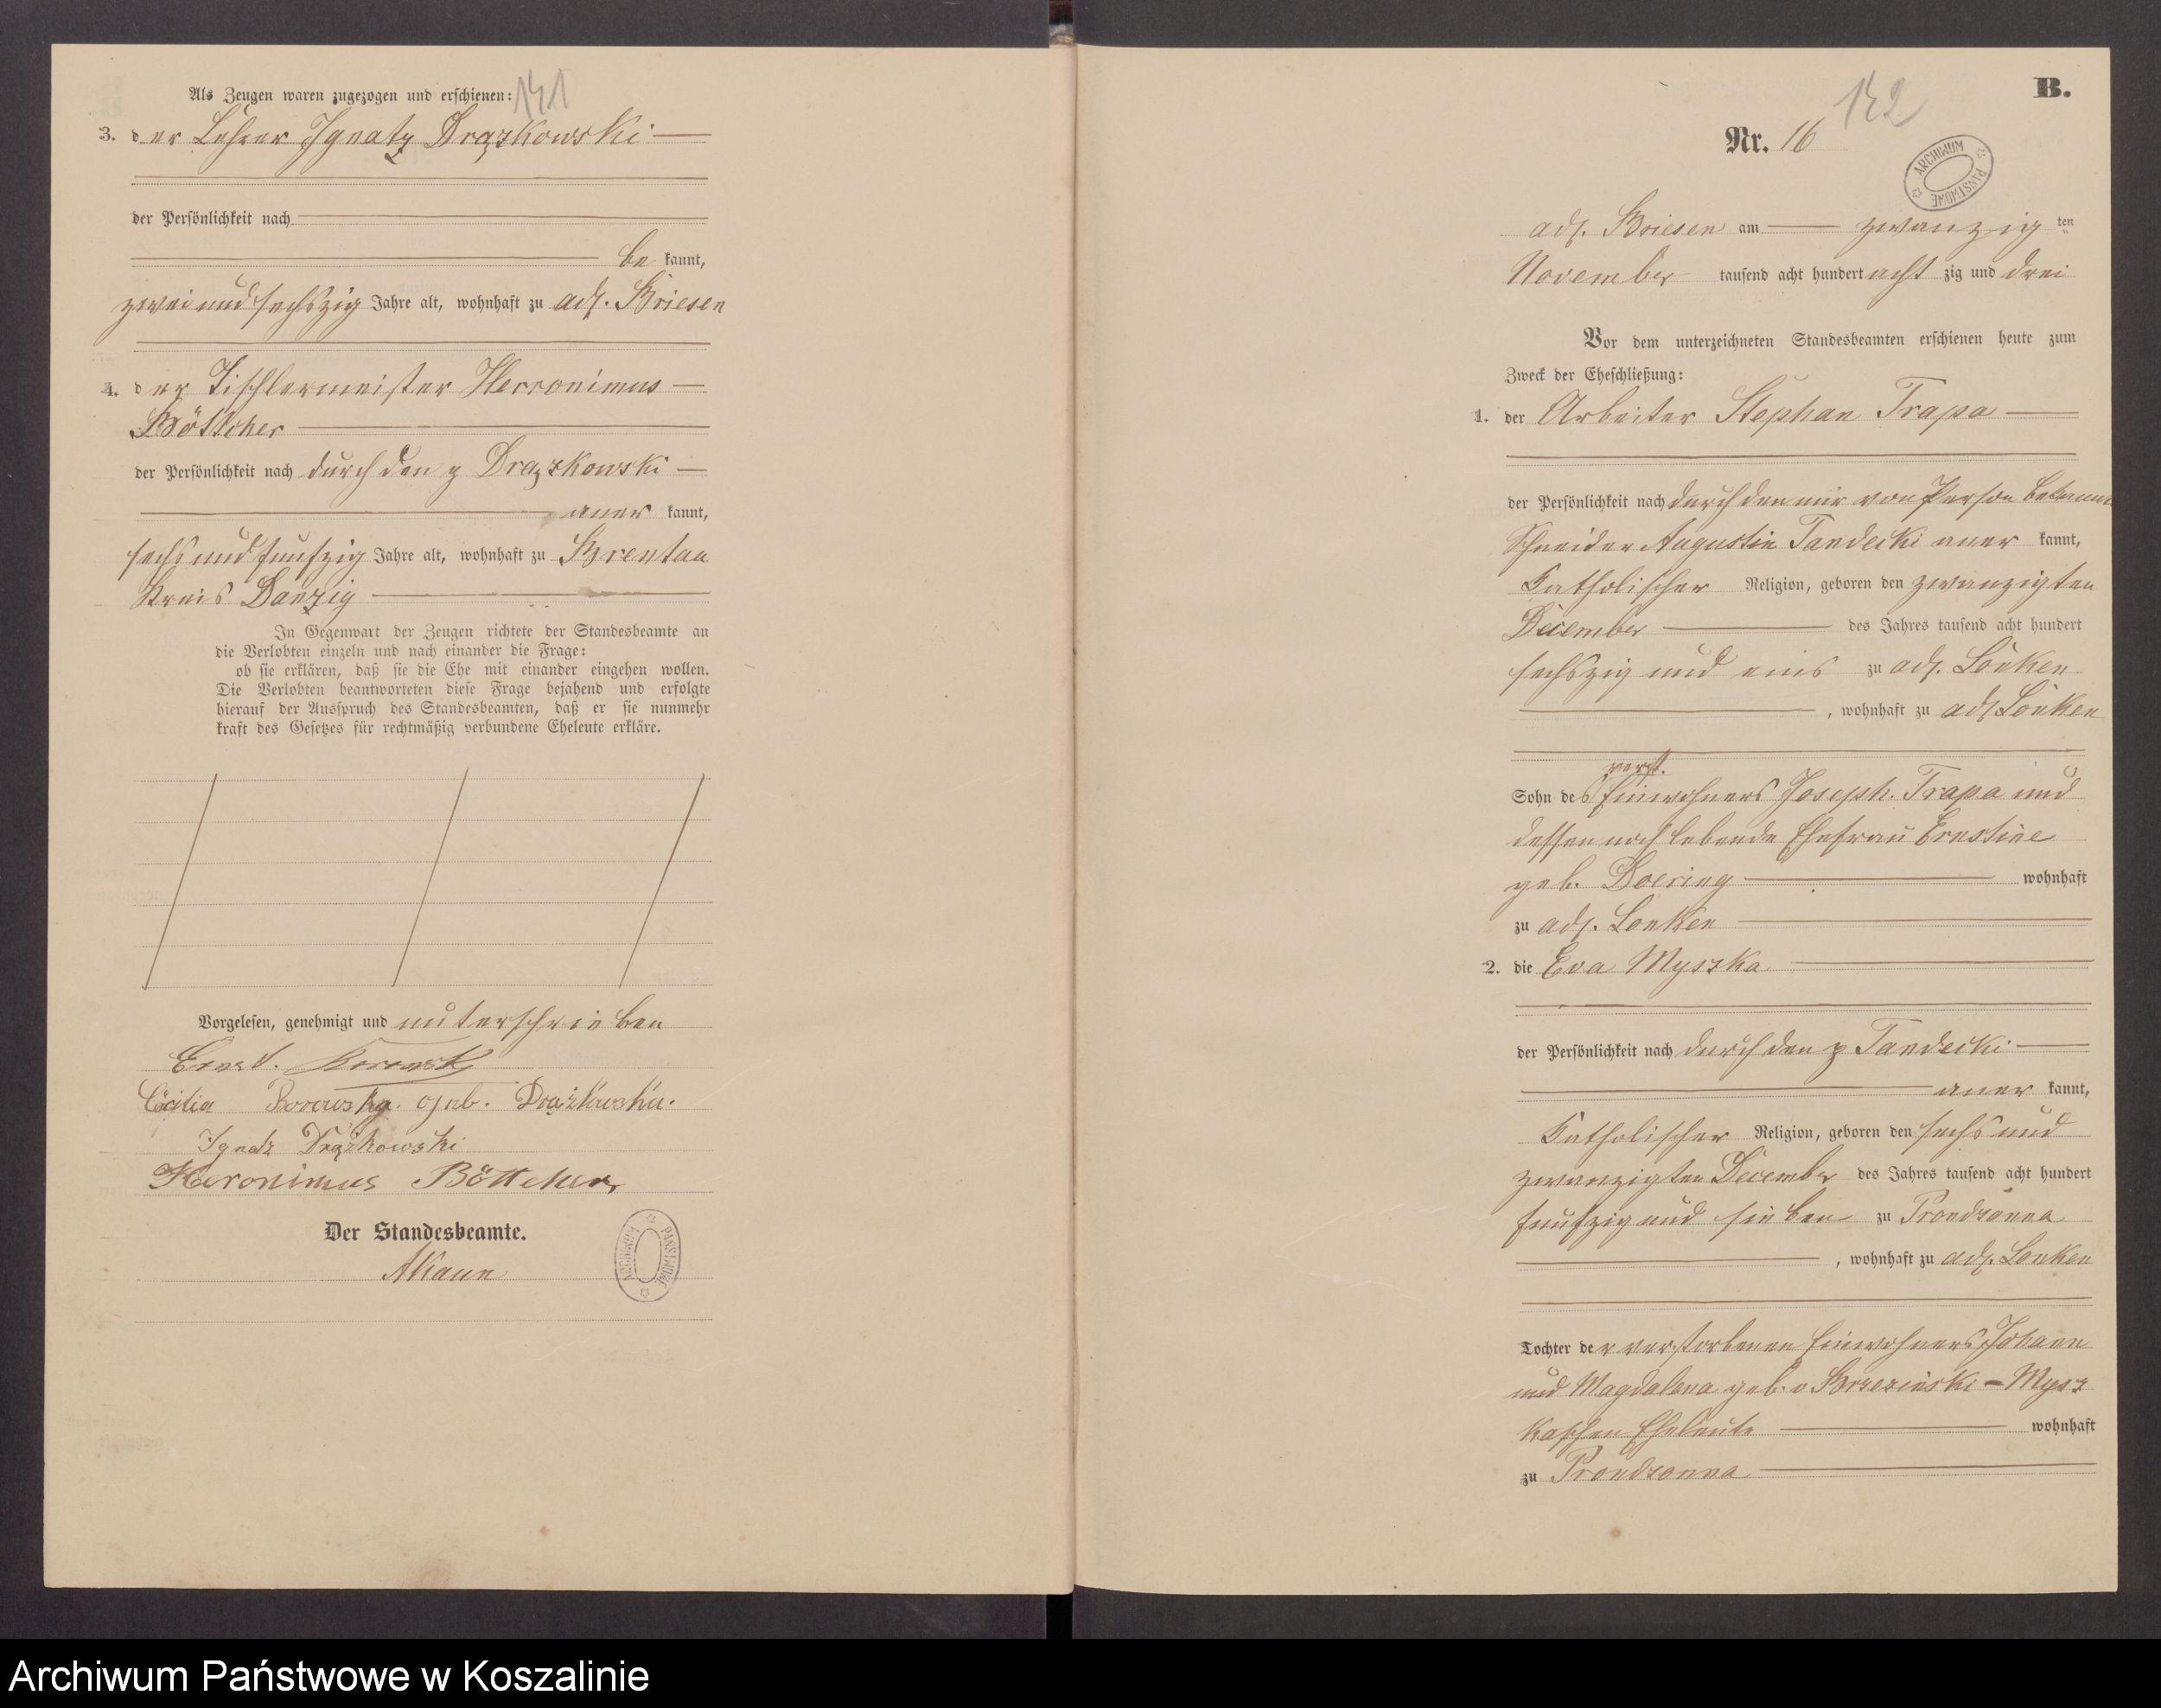 141
Als Zeugen waren zugezogen und erschienen:
3. der Lehrer Ignatz Drązkowski
der Persönlichkeit nach
be kannt,
zwei und sechszig Jahre alt, wohnhaft zu adl. Briesen
4. der Tischlermeister Herronimus
Böttcher
der Persönlichkeit nach durch den p Drązkowski
aner kannt,
sechs und funfzig Jahre alt, wohnhaft zu Brentau
Kreis Danzig
In Gegenwart der Zeugen richtete der Standesbeamte an
die Verlobten einzeln und nach einander die Frage:
ob sie erklären, daß sie die Ehe mit einander eingehen wollen.
Die Verlobten beantworteten diese Frage bejahend und erfolgte
hierauf der Ausspruch des Standesbeamten, daß er sie nunmehr
kraft des Gesetzes für rechtmäßig verbundene Eheleute erkläre.
Vorgelesen, genehmigt und unterschrieben
Ernst
Cäcilia Borowsky. geb.
Ignatz Drązkowski
Heronimus Böttcher
Der Standesbeamte.
AKaun
ARCHIWUM PAŃSTWOWE
142
B.
Nr. 16
ARCHIWUM PAŃSTWOWE
adl. Briesen am zwanzig ten
November tausend acht hundert acht zig und drei
Vor dem unterzeichneten Standesbeamten erschienen heute zum
Zweck der Eheschließung:
1. der Arbeiter Stephan Trapa
der Persönlichkeit nach durch den mir von Person bekannten
Schneider Augustin Tandecki aner kannt,
Katholischer Religion, geboren den zwanzigten
December des Jahres tausend acht hundert
sechszig und eins zu adl. Lonken
, wohnhaft zu adl Lonken
verst.
Sohn des Einwohners Joseph Trapa und
dessen noch lebende Ehefrau Ernstine
geb. Doering wohnhaft
zu adl. Lonken
2. die Eva Myszka
der Persönlichkeit nach durch den p Tandecki
aner kannt,
Katholischer Religion, geboren den sechs und
zwanzigten December des Jahres tausend acht hundert
funfzig und sieben zu Prondzonna
, wohnhaft zu adl. Lonken
Tochter der verstorbenen Einwohners Johann
und Magdalena geb. v Brzezinski - Mysz
kaschen Eheleute wohnhaft
zu Prondzonna
Archiwum Państwowe w Koszalinie